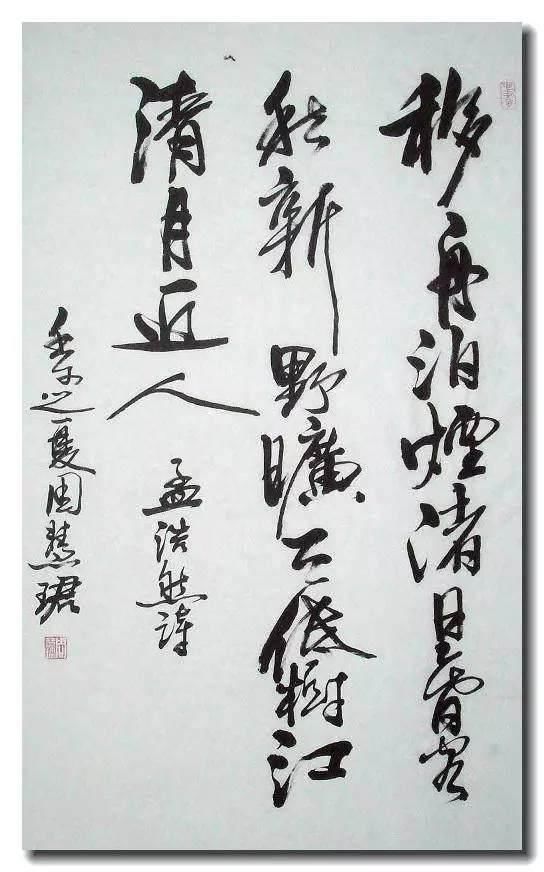 移舟泊煙渚日暮客
愁新野曠天低樹江
清月近人 孟浩然詩
壬午之夏周慧珺